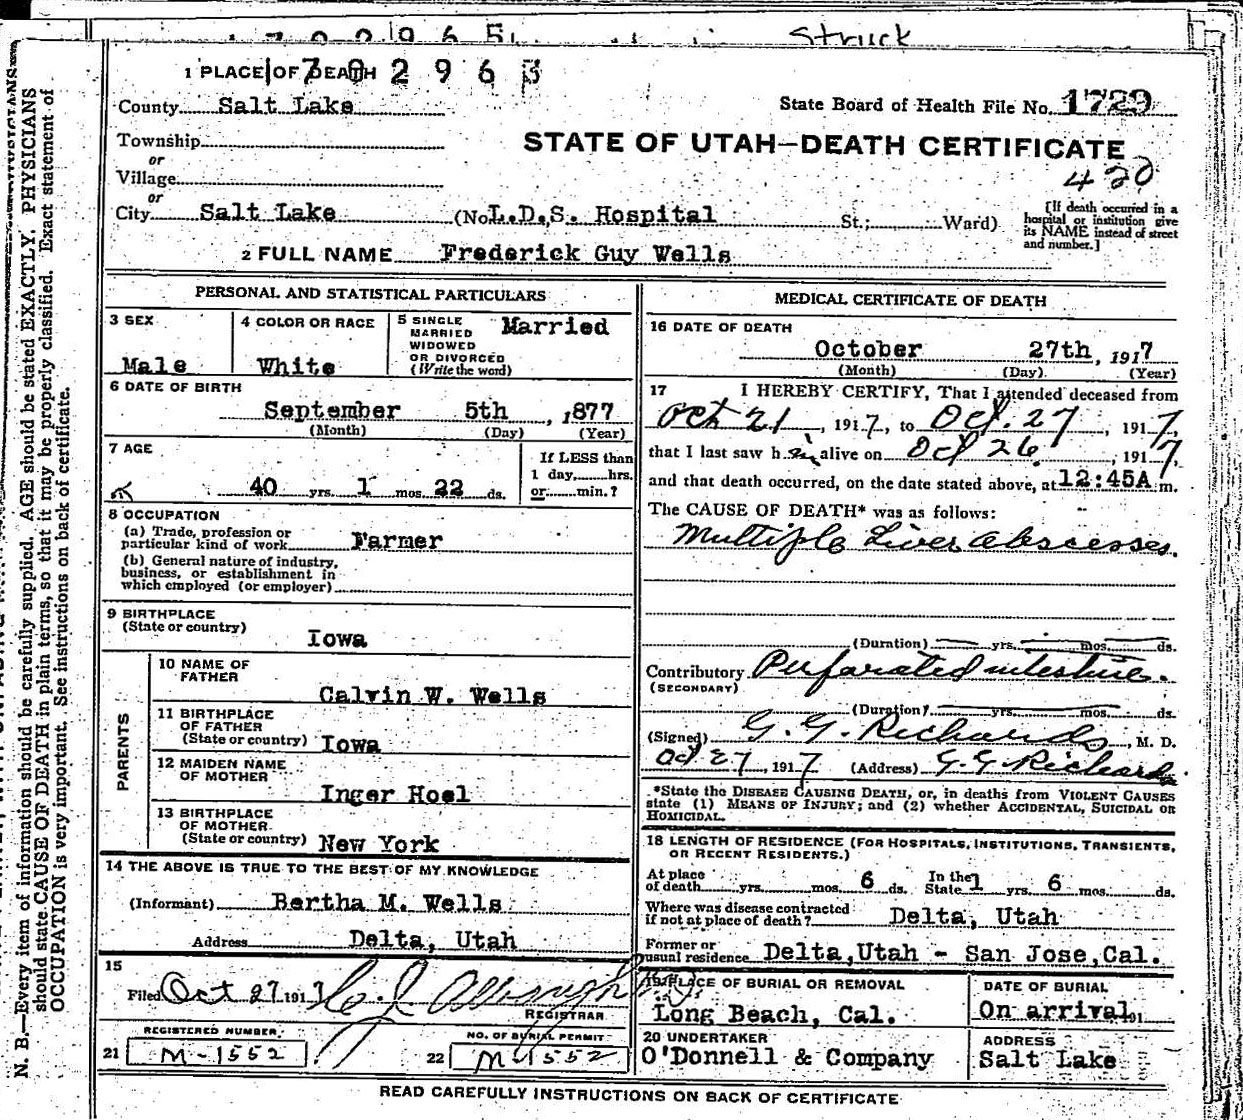 Struck
1 PLACE OF DEATH
1702963
County Salt Lake
State Board of Health File No. 1729
Township
or
Village
or
STATE OF UTAH—DEATH CERTIFICATE
420
City Salt Lake (No. L.D.S. Hospital St.; Ward)
[If death occurred in a hospital or institution give its NAME instead of street and number.]
2 FULL NAME Frederick Guy Wells
PERSONAL AND STATISTICAL PARTICULARS
3 SEX
Male
4 COLOR OR RACE
White
5 SINGLE
MARRIED
WIDOWED
OR DIVORCED
(Write the word)
Married
6 DATE OF BIRTH
September 5th, 1877
(Month) (Day) (Year)
7 AGE
40 yrs. 1 mos. 22 ds.
If LESS than
1 day, hrs.
or min.?
8 OCCUPATION
(a) Trade, profession or
particular kind of work Farmer
(b) General nature of industry,
business, or establishment in
which employed (or employer)
9 BIRTHPLACE
(State or country)
Iowa
PARENTS
10 NAME OF
FATHER
Calvin W. Wells
11 BIRTHPLACE
OF FATHER
(State or country) Iowa
12 MAIDEN NAME
OF MOTHER
Inger Hoel
13 BIRTHPLACE
OF MOTHER
(State or country) New York
14 THE ABOVE IS TRUE TO THE BEST OF MY KNOWLEDGE
(Informant) Bertha M. Wells
Address Delta, Utah
15
Filed Oct 27 1917
REGISTRAR
REGISTERED NUMBER
21 M-1552
NO. OF BURIAL PERMIT
22 M 1552
MEDICAL CERTIFICATE OF DEATH
16 DATE OF DEATH
October 27th, 1917
(Month) (Day) (Year)
17 I HEREBY CERTIFY, That I attended deceased from
Oct 21, 1917, to Oct. 27, 1917,
that I last saw h im alive on Oct 26, 1917,
and that death occurred, on the date stated above, at 12:45A m.
The CAUSE OF DEATH* was as follows:
Multiple Liver abscesses.
(Duration) yrs. mos. ds.
Contributory Perforated intestine.
(SECONDARY)
(Duration) yrs. mos. ds.
(Signed) G. G. Richards, M. D.
Oct 27, 1917 (Address) G. G. Richards
*State the DISEASE CAUSING DEATH, or, in deaths from VIOLENT CAUSES
state (1) MEANS OF INJURY; and (2) whether ACCIDENTAL, SUICIDAL OR
HOMICIDAL.
18 LENGTH OF RESIDENCE (FOR HOSPITALS, INSTITUTIONS, TRANSIENTS,
OR RECENT RESIDENTS.)
At place
of death yrs. mos. 6 ds. In the State 1 yrs. 6 mos. ds.
Where was disease contracted
if not at place of death? Delta, Utah
Former or
usual residence Delta, Utah - San Jose, Cal.
19 PLACE OF BURIAL OR REMOVAL
Long Beach, Cal.
DATE OF BURIAL
On arrival 191
20 UNDERTAKER
O'Donnell & Company
ADDRESS
Salt Lake
READ CAREFULLY INSTRUCTIONS ON BACK OF CERTIFICATE
N. B.—Every item of information should be carefully supplied. AGE should be stated EXACTLY. PHYSICIANS
should state CAUSE OF DEATH in plain terms, so that it may be properly classified. Exact statement of
OCCUPATION is very important. See instructions on back of certificate.